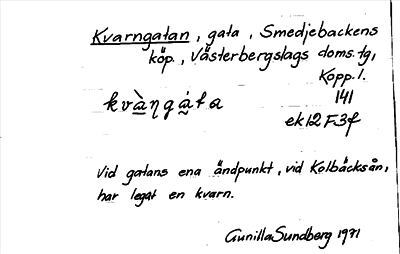 Kvarngatan, gata, Smedjebackens
köp., Västerbergslags doms. tg,
Kopp. l.
kvàŋgáta
141
ek12F3f
Vid gatans ena ändpunkt, vid Kolbäcksån,
har legat en kvarn.
Gunilla Sundberg 1971